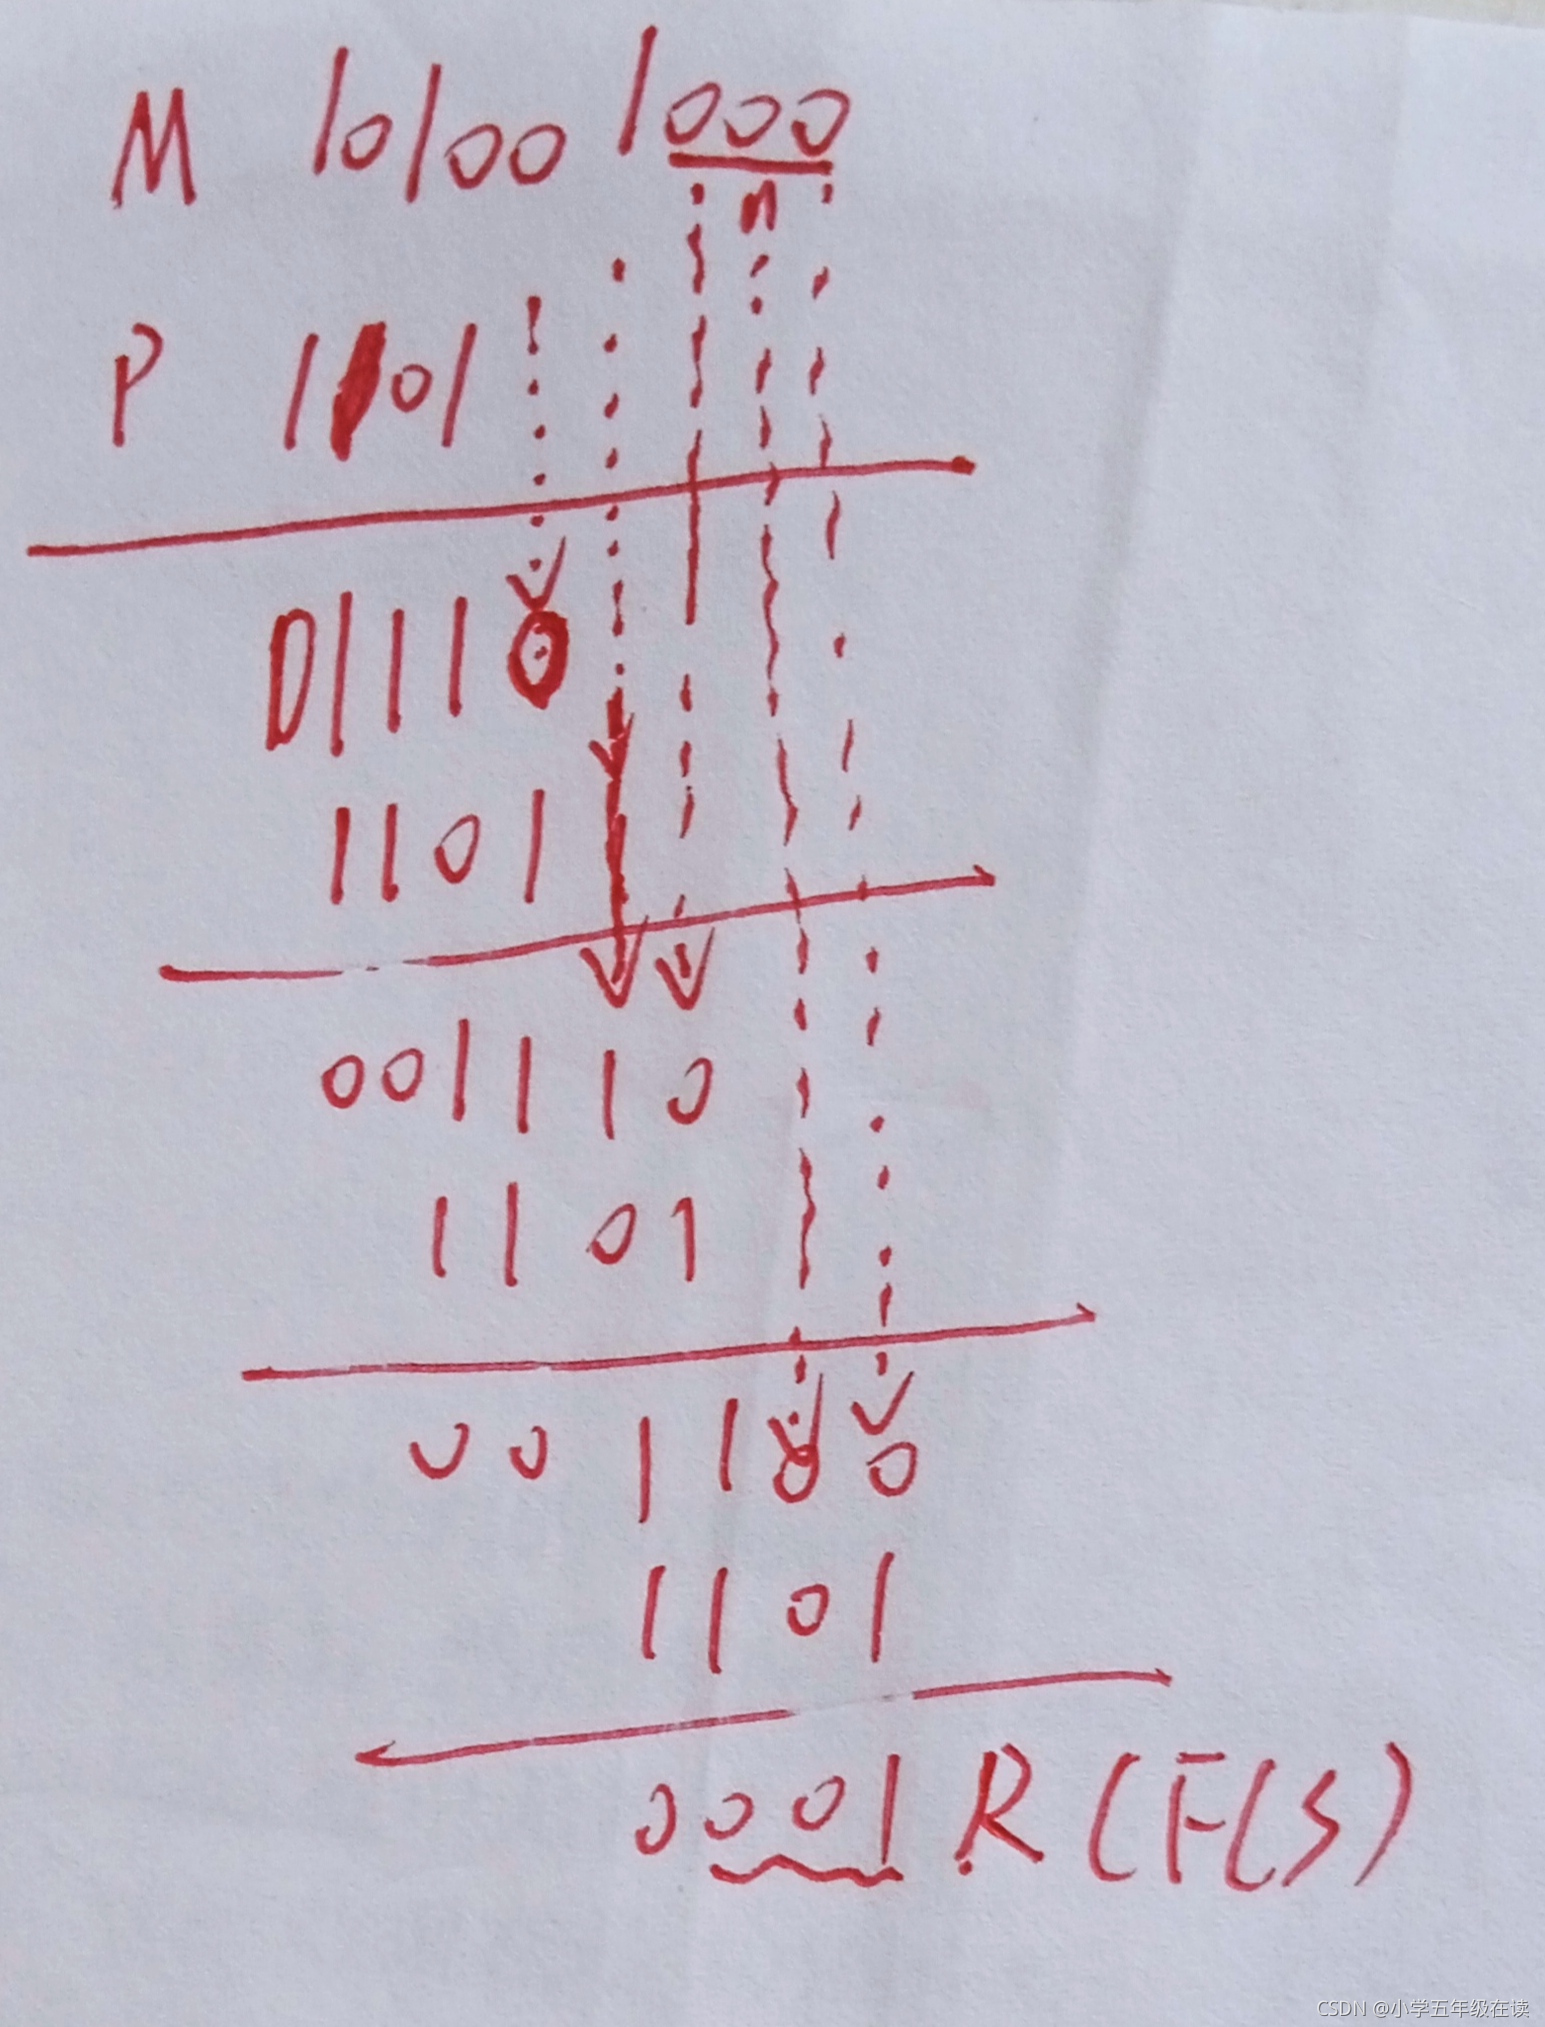 M 101001000
P 1101
01110
1101
001110
1101
001100
1101
0001 R (FCS)
CSDN @小学五年级在读